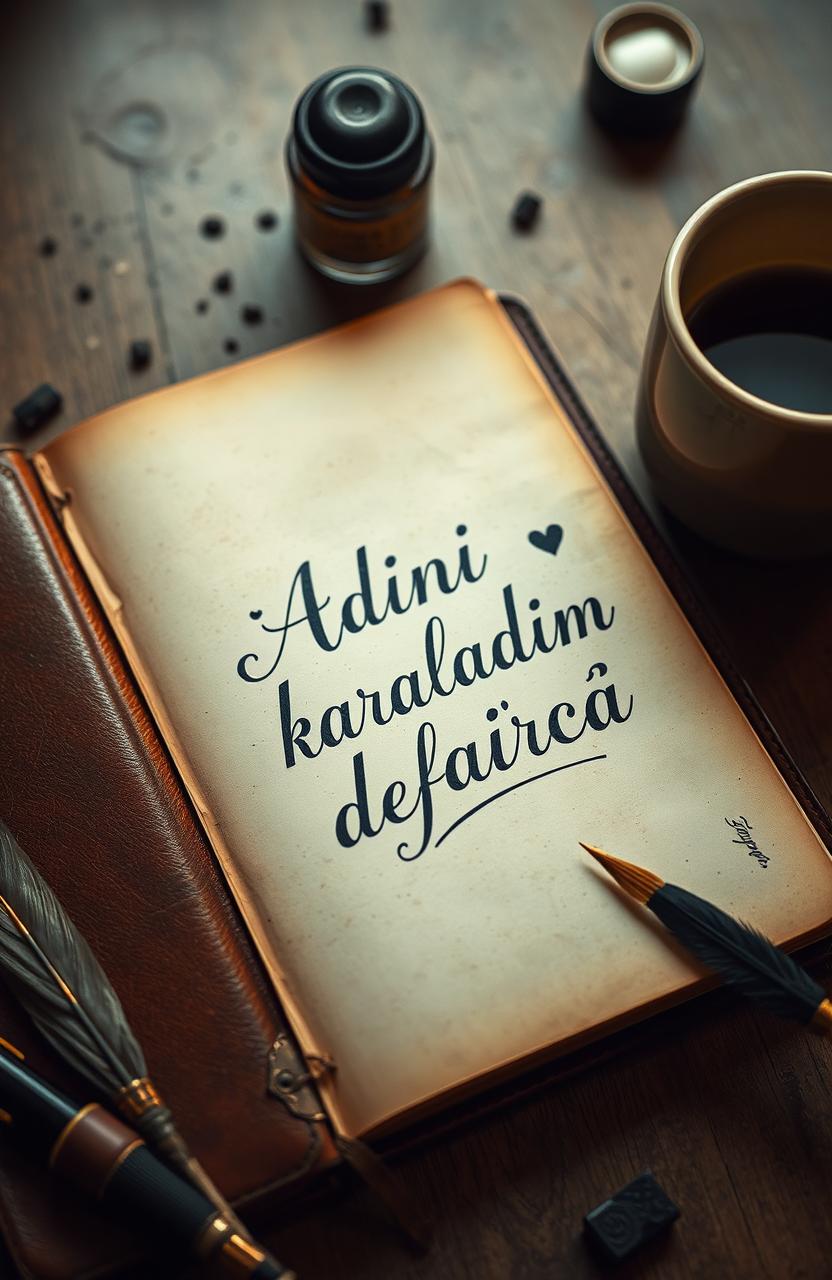 Adini
karaladim
defaïrcâ